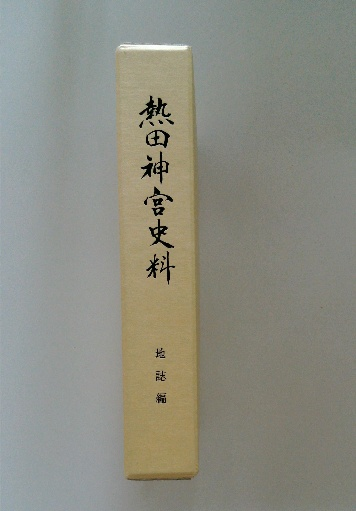 熱田神宮史料
地誌編